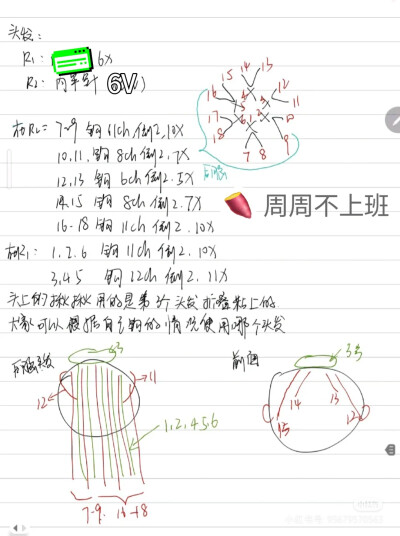 头发：
R1: 6X
R2: 内半针 6V)
在R2= 7-9 钩 11ch 倒2, 10X
10, 11, 钩 8ch 倒2, 7X
12, 13 钩 6ch 倒2. 5X
14. 15 钩 8ch 倒2. 7X
16-18 钩 11ch 倒2. 10X
在R1: 1, 2. 6 钩 11ch 倒2. 10X
3, 4, 5 钩 12ch 倒2. 11X
头上的揪揪用的是第3个头发折叠粘上的
大家可以根据自己钩的情况使用哪个头发
15 14 13 12 11 10 9 8 7 18 17 16
1 2 3 4 5 6
周周不上班
3
12
11
1, 2, 4, 5, 6
7-9. 16-18
前面
3
15
14
13
12